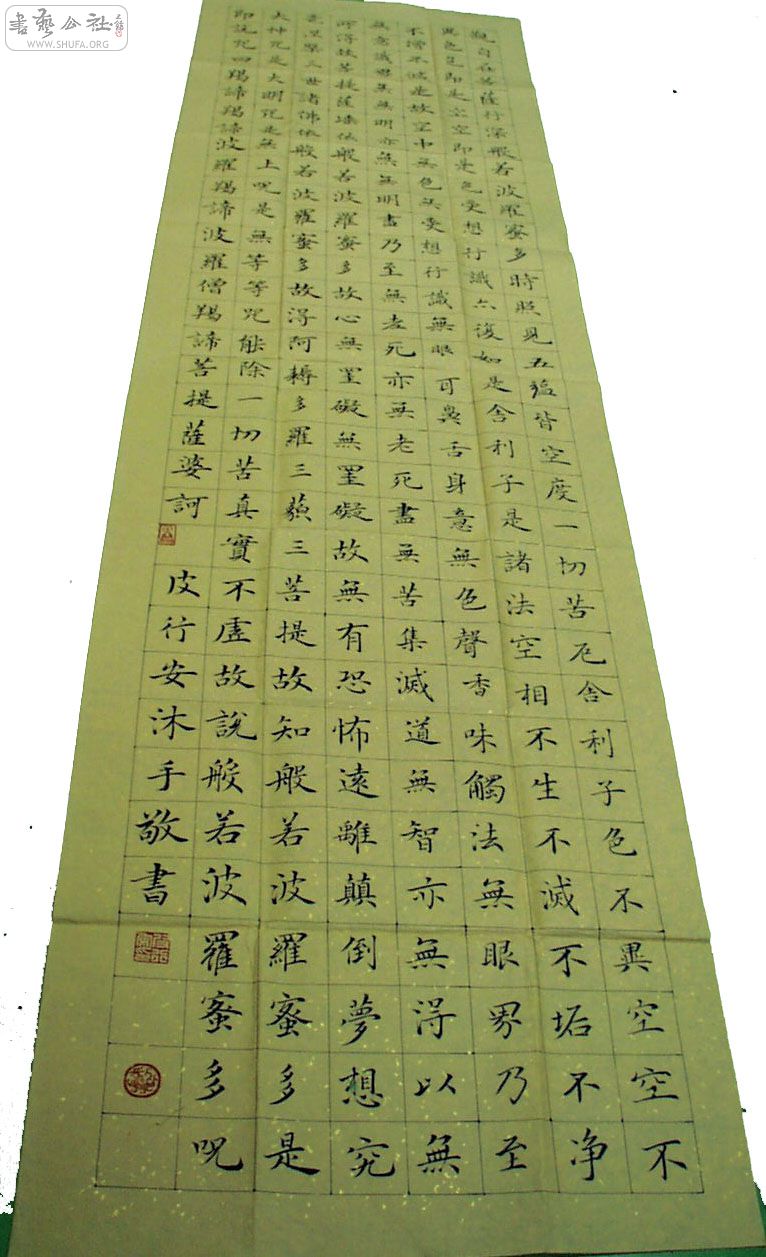 書藝公社
WWW.SHUFA.ORG
觀自在菩薩行深般若波羅蜜多時照見五蘊皆空度一切苦厄舍利子色不異空空不
異色色即是空空即是色受想行識亦復如是舍利子是諸法空相不生不滅不垢不净
不增不減是故空中無色無受想行識無眼可鼻舌身意無色聲香味觸法無眼界乃至
無意識界無無明亦無無明盡乃至無老死亦無老死盡無苦集滅道無智亦無得以無
所得故菩提薩埵依般若波羅蜜多故心無罣礙無罣礙故無有恐怖遠離顛倒夢想究
竟涅槃三世諸佛依般若波羅蜜多故得阿耨多羅三藐三菩提故知般若波羅蜜多是
大神咒是大明咒是無上呪是無等等咒能除一切苦真實不虛故說般若波羅蜜多呪
即說咒曰羯諦羯諦波羅羯諦波羅僧羯諦菩提薩婆訶
皮行安沐手敬書